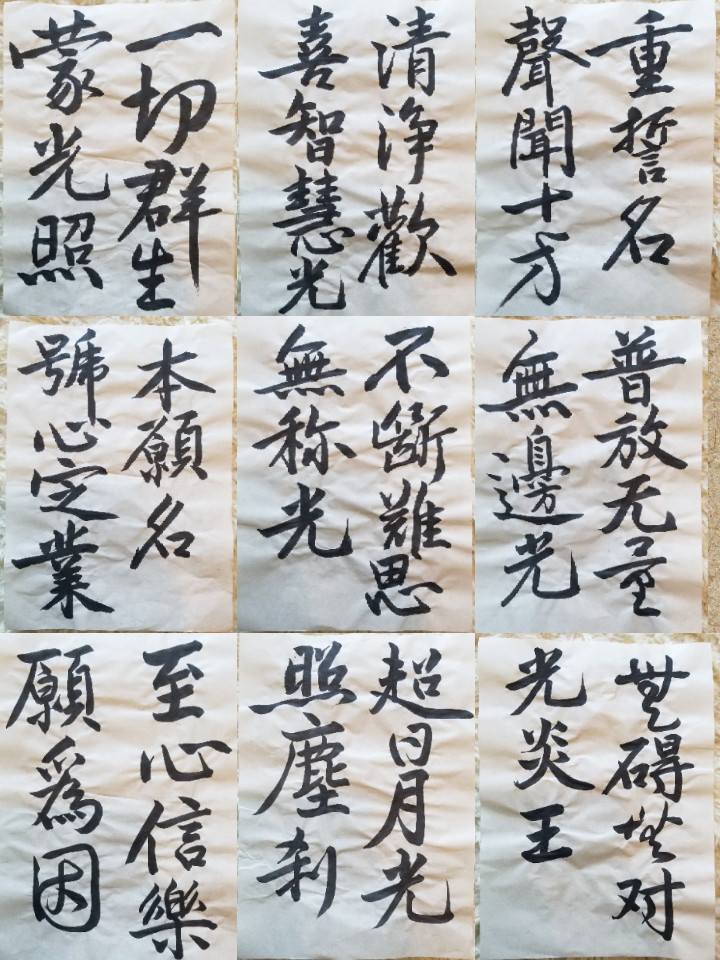 重誓名
聲聞十方
普放无量
無邊光
無碍無对
光炎王
清浄歡
喜智慧光
不斷難思
無称光
超日月光
照塵刹
一切群生
蒙光照
本願名
號心定業
至心信樂
願爲因